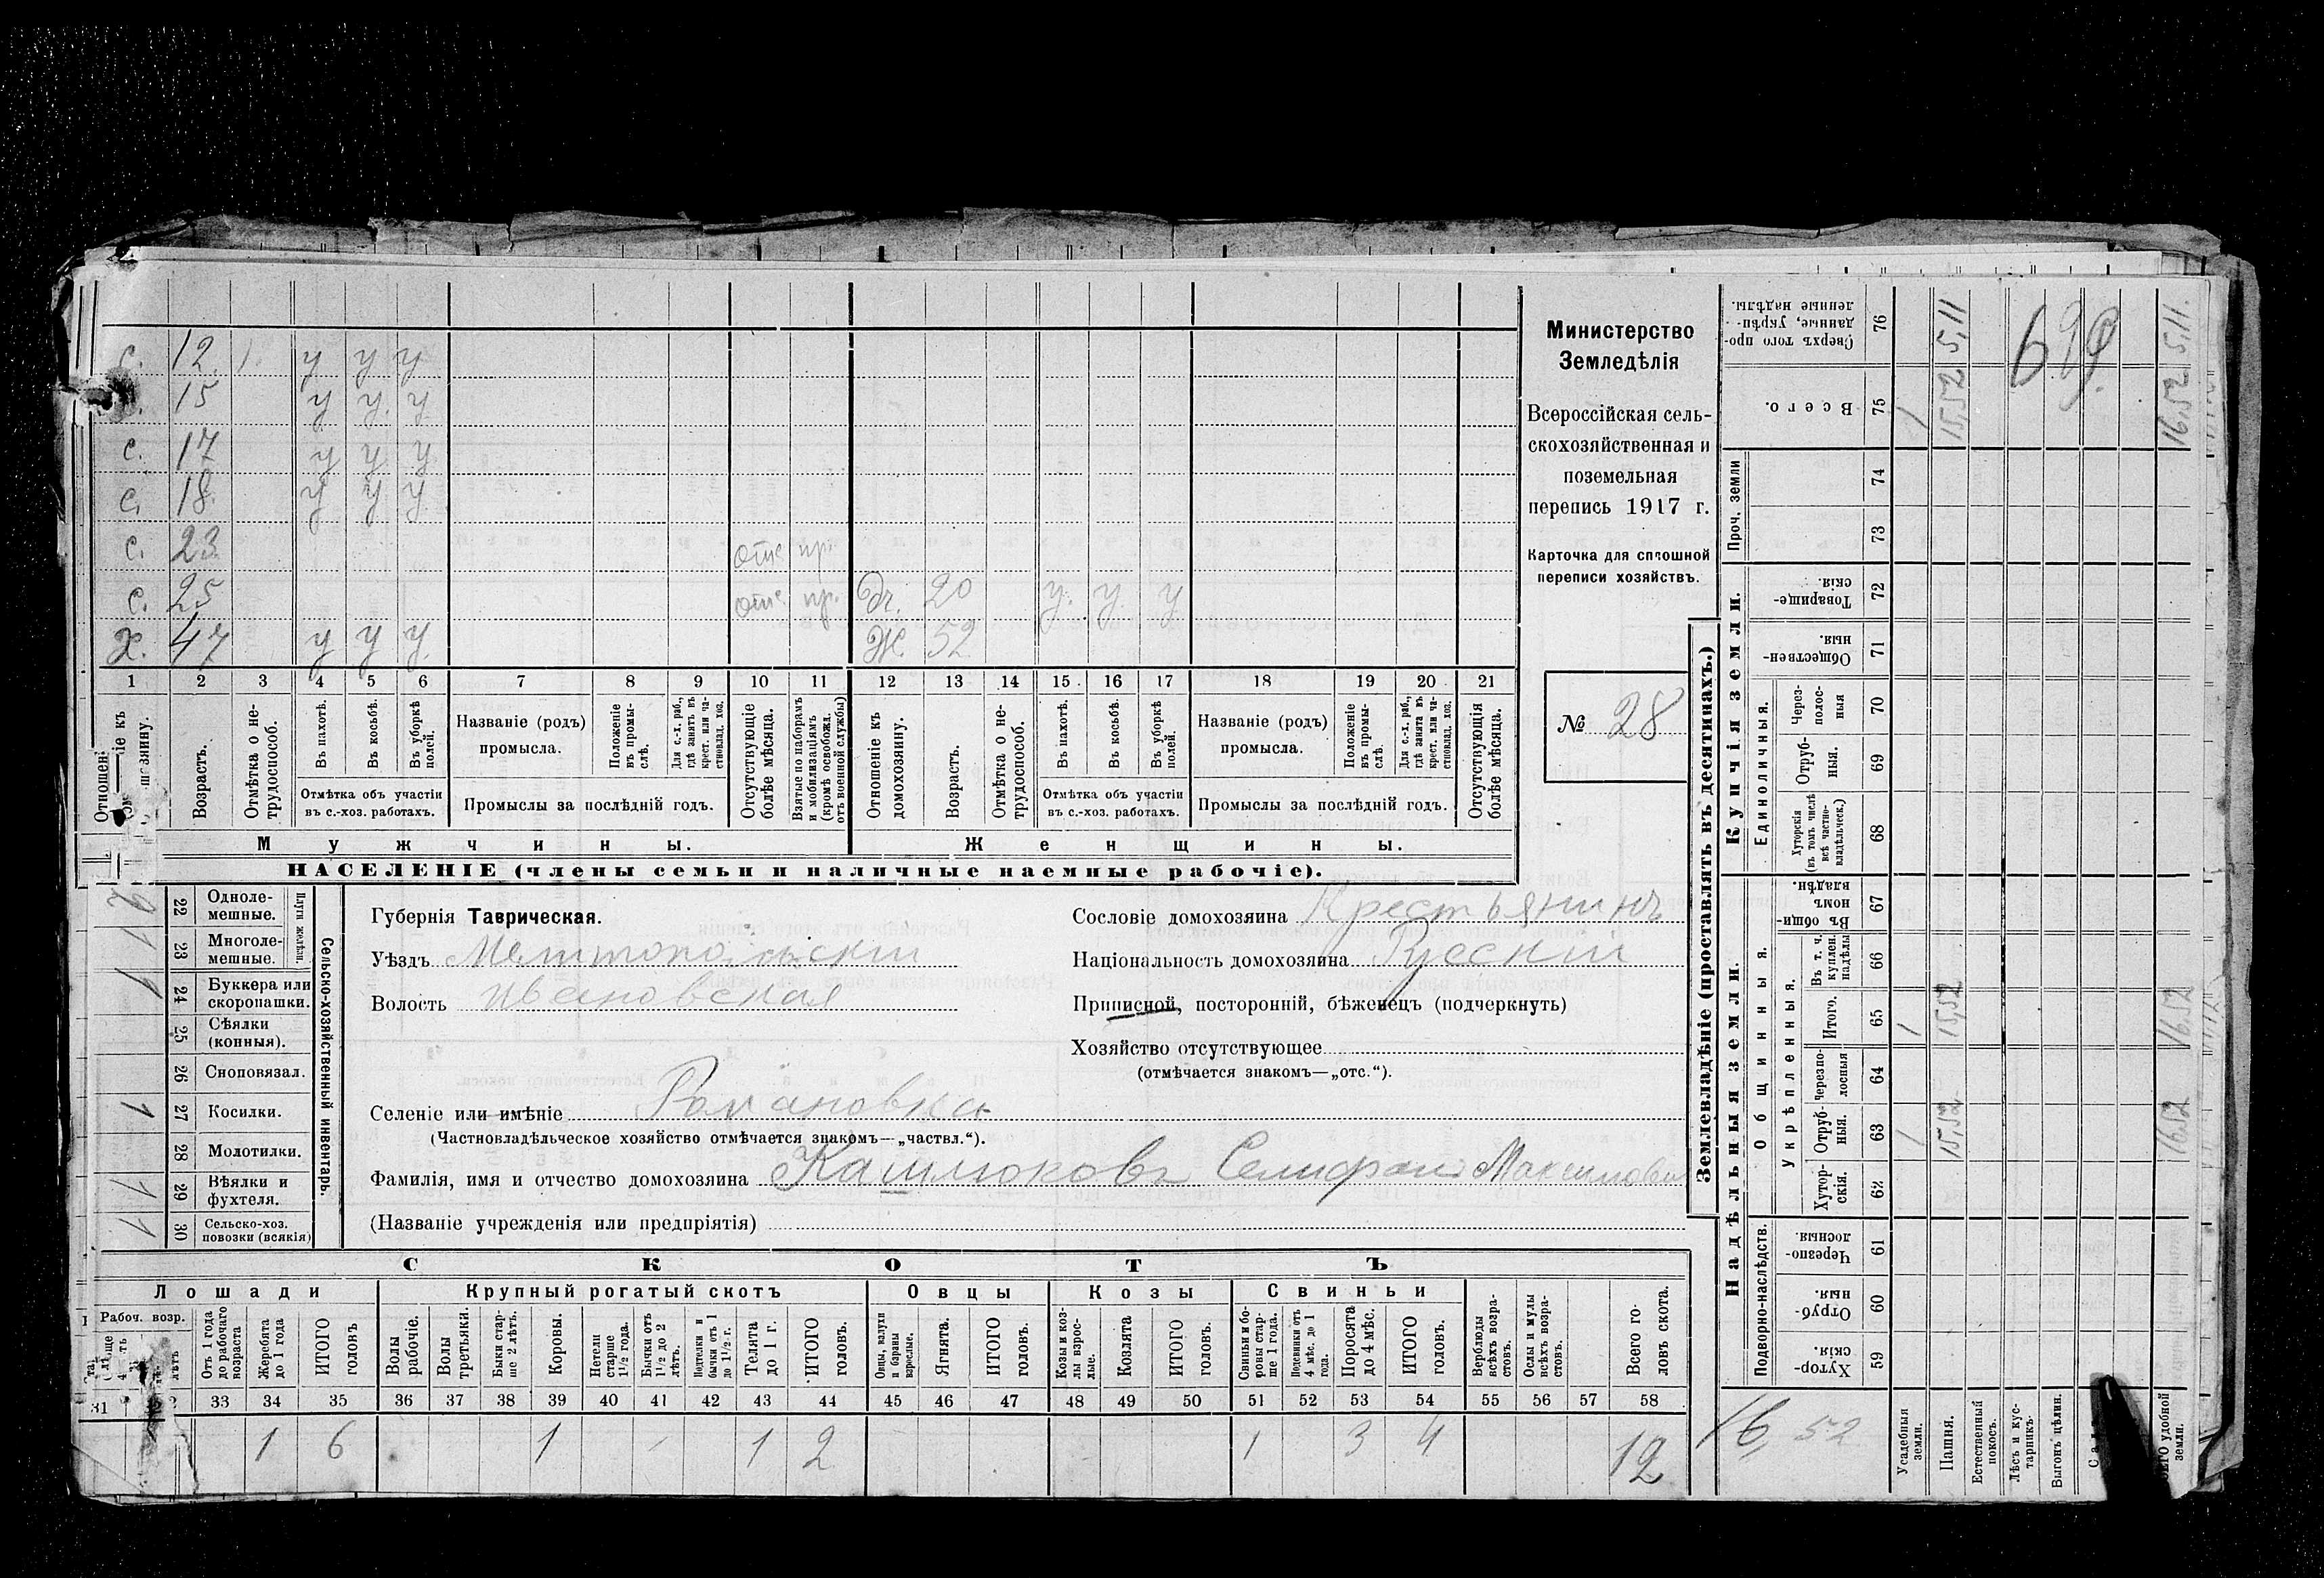 с. 12. у у у
15 у у. у
с. 17 у у у
с. 18. у у у
с. 23 отс пр.
с. 25 отс. пр. дч. 20 у. у у
х. 47 у у у. Ж. 52
1 2 3 4 5 6 7 8 9 10 11 12 13 14 15 16 17 18 19 20 21
Возрастъ.
Отмѣтка о не-
трудоспособ.
Въ пахотѣ.
Въ косьбѣ.
Въ уборкѣ
полей.
Отмѣтка объ участіи
въ с.-хоз. работахъ.
Названіе (родъ)
промысла.
Положеніе
въ промы-
слѣ.
Для с.-х. раб.,
гдѣ занятъ въ
крест. или ча-
стновлад. хоз.
Промыслы за послѣдній годъ.
Отсутствующіе
болѣе мѣсяца.
Взятые по наборамъ
и мобилизаціямъ
(кромѣ освобожд.
отъ военной службы)
Отношеніе къ
домохозяину.
Возрастъ.
Отмѣтка о не-
трудоспособ.
Въ пахотѣ.
Въ косьбѣ.
Въ уборкѣ
полей.
Отмѣтка объ участіи
въ с.-хоз. работахъ.
Названіе (родъ)
промысла.
Положеніе
въ промы-
слѣ.
Для с.-х. раб.,
гдѣ занята въ
крест. или ча-
стновлад. хоз.
Промыслы за послѣдній годъ.
Отсутствующія
болѣе мѣсяца.
Мужчины.
Женщины.
НАСЕЛЕНІЕ (члены семьи и наличные наемные рабочіе).
Министерство
Земледѣлія
Всероссійская сель-
скохозяйственная и
поземельная
перепись 1917 г.
Карточка для сплошной
переписи хозяйствъ.
№ 28
Плуги желѣзн.
22 Одноле-
мешные.
23 Многоле-
мешные.
24 Буккера или
скоропашки.
25 Сѣялки
(конныя).
26 Сноповязал.
27 Косилки.
28 Молотилки.
29 Вѣялки и
фухтеля.
30 Сельско-хоз.
повозки (всякія)
Сельско-хозяйственный инвентарь.
Губернія Таврическая.
Уѣздъ Мелитопольскій
Волость Ивановская
Селеніе или имѣніе Романовка
(Частновладѣльческое хозяйство отмѣчается знакомъ—„частвл.“).
Фамилія, имя и отчество домохозяина Кашлюковъ Селифан Максимови
(Названіе учрежденія или предпріятія)
Сословіе домохозяина Крестьянинъ
Національность домохозяина Русскій
Приписной, посторонній, бѣженецъ (подчеркнуть)
Хозяйство отсутствующее
(отмѣчается знакомъ—„отс.“).
СКОТЪ
Лошади
Рабоч. возр.
Отъ 1 года
до рабочаго
возраста
Жеребята
до 1 года
ИТОГО
головъ
Крупный рогатый скотъ
Волы
рабочіе.
Волы
третьяки.
Быки стар-
ше 2 лѣтъ.
Коровы.
Нетели
старше
1 1/2 года.
Бычки отъ
1 1/2 до 2
лѣтъ.
Подтелки и
бычки отъ 1
до 1 1/2 г.
Телята
до 1 г.
ИТОГО
головъ.
Овцы
Овцы, валухи
и бараны
взрослые.
Ягнята.
ИТОГО
головъ.
Козы
Козы и коз-
лы взрос-
лые.
Козлята
ИТОГО
головъ.
Свиньи
Свиньи и бо-
ровы стар-
ше 1 года.
Подсвинки отъ
4 мѣс. до 1
года.
Поросята
до 4 мѣс.
ИТОГО
головъ.
Верблюды
всѣхъ возра-
стовъ.
Ослы и мулы
всѣхъ возра-
стовъ.
Всего го-
ловъ скота.
31 33 34 35 36 37 38 39 40 41 42 43 44 45 46 47 48 49 50 51 52 53 54 55 56 57 58
1 6 1 1 2 1 3 4 12
Землевладѣніе (проставлять въ десятинахъ.)
Купчія земли.
Надѣльныя земли.
Сверхъ того про-
данные, укрѣп-
ленные надѣлы. 76
Всего. 75
Проч. земли 74
73
Товарище-
скія. 72
Обществен-
ныя. 71
Единоличныя.
Через-
полос-
ныя 70
Отруб-
ныя. 69
Хуторскія
(въ томъ числѣ
всѣ частно-
владѣльческ.) 68
Общинныя.
Въ общи-
номъ
владѣн. 67
Укрѣпленныя.
Въ т. ч.
куплен.
надѣлы 66
Итого. 65
Черезпо-
лосныя 64
Отруб-
ныя. 63
Хутор-
скія. 62
Подворно-наслѣдств.
Черезпо-
лосныя. 61
Отруб-
ныя. 60
Хутор-
скія. 59
16,52
Усадебныя
земли.
1 1 1
Пашня.
15,52 15,52 15,52 5,11
Естественный
покосъ.
Лѣсъ и кус-
тарникъ.
Выгонъ цѣлин.
удобной
земли.
16,52 16,52 16,52 5,11.